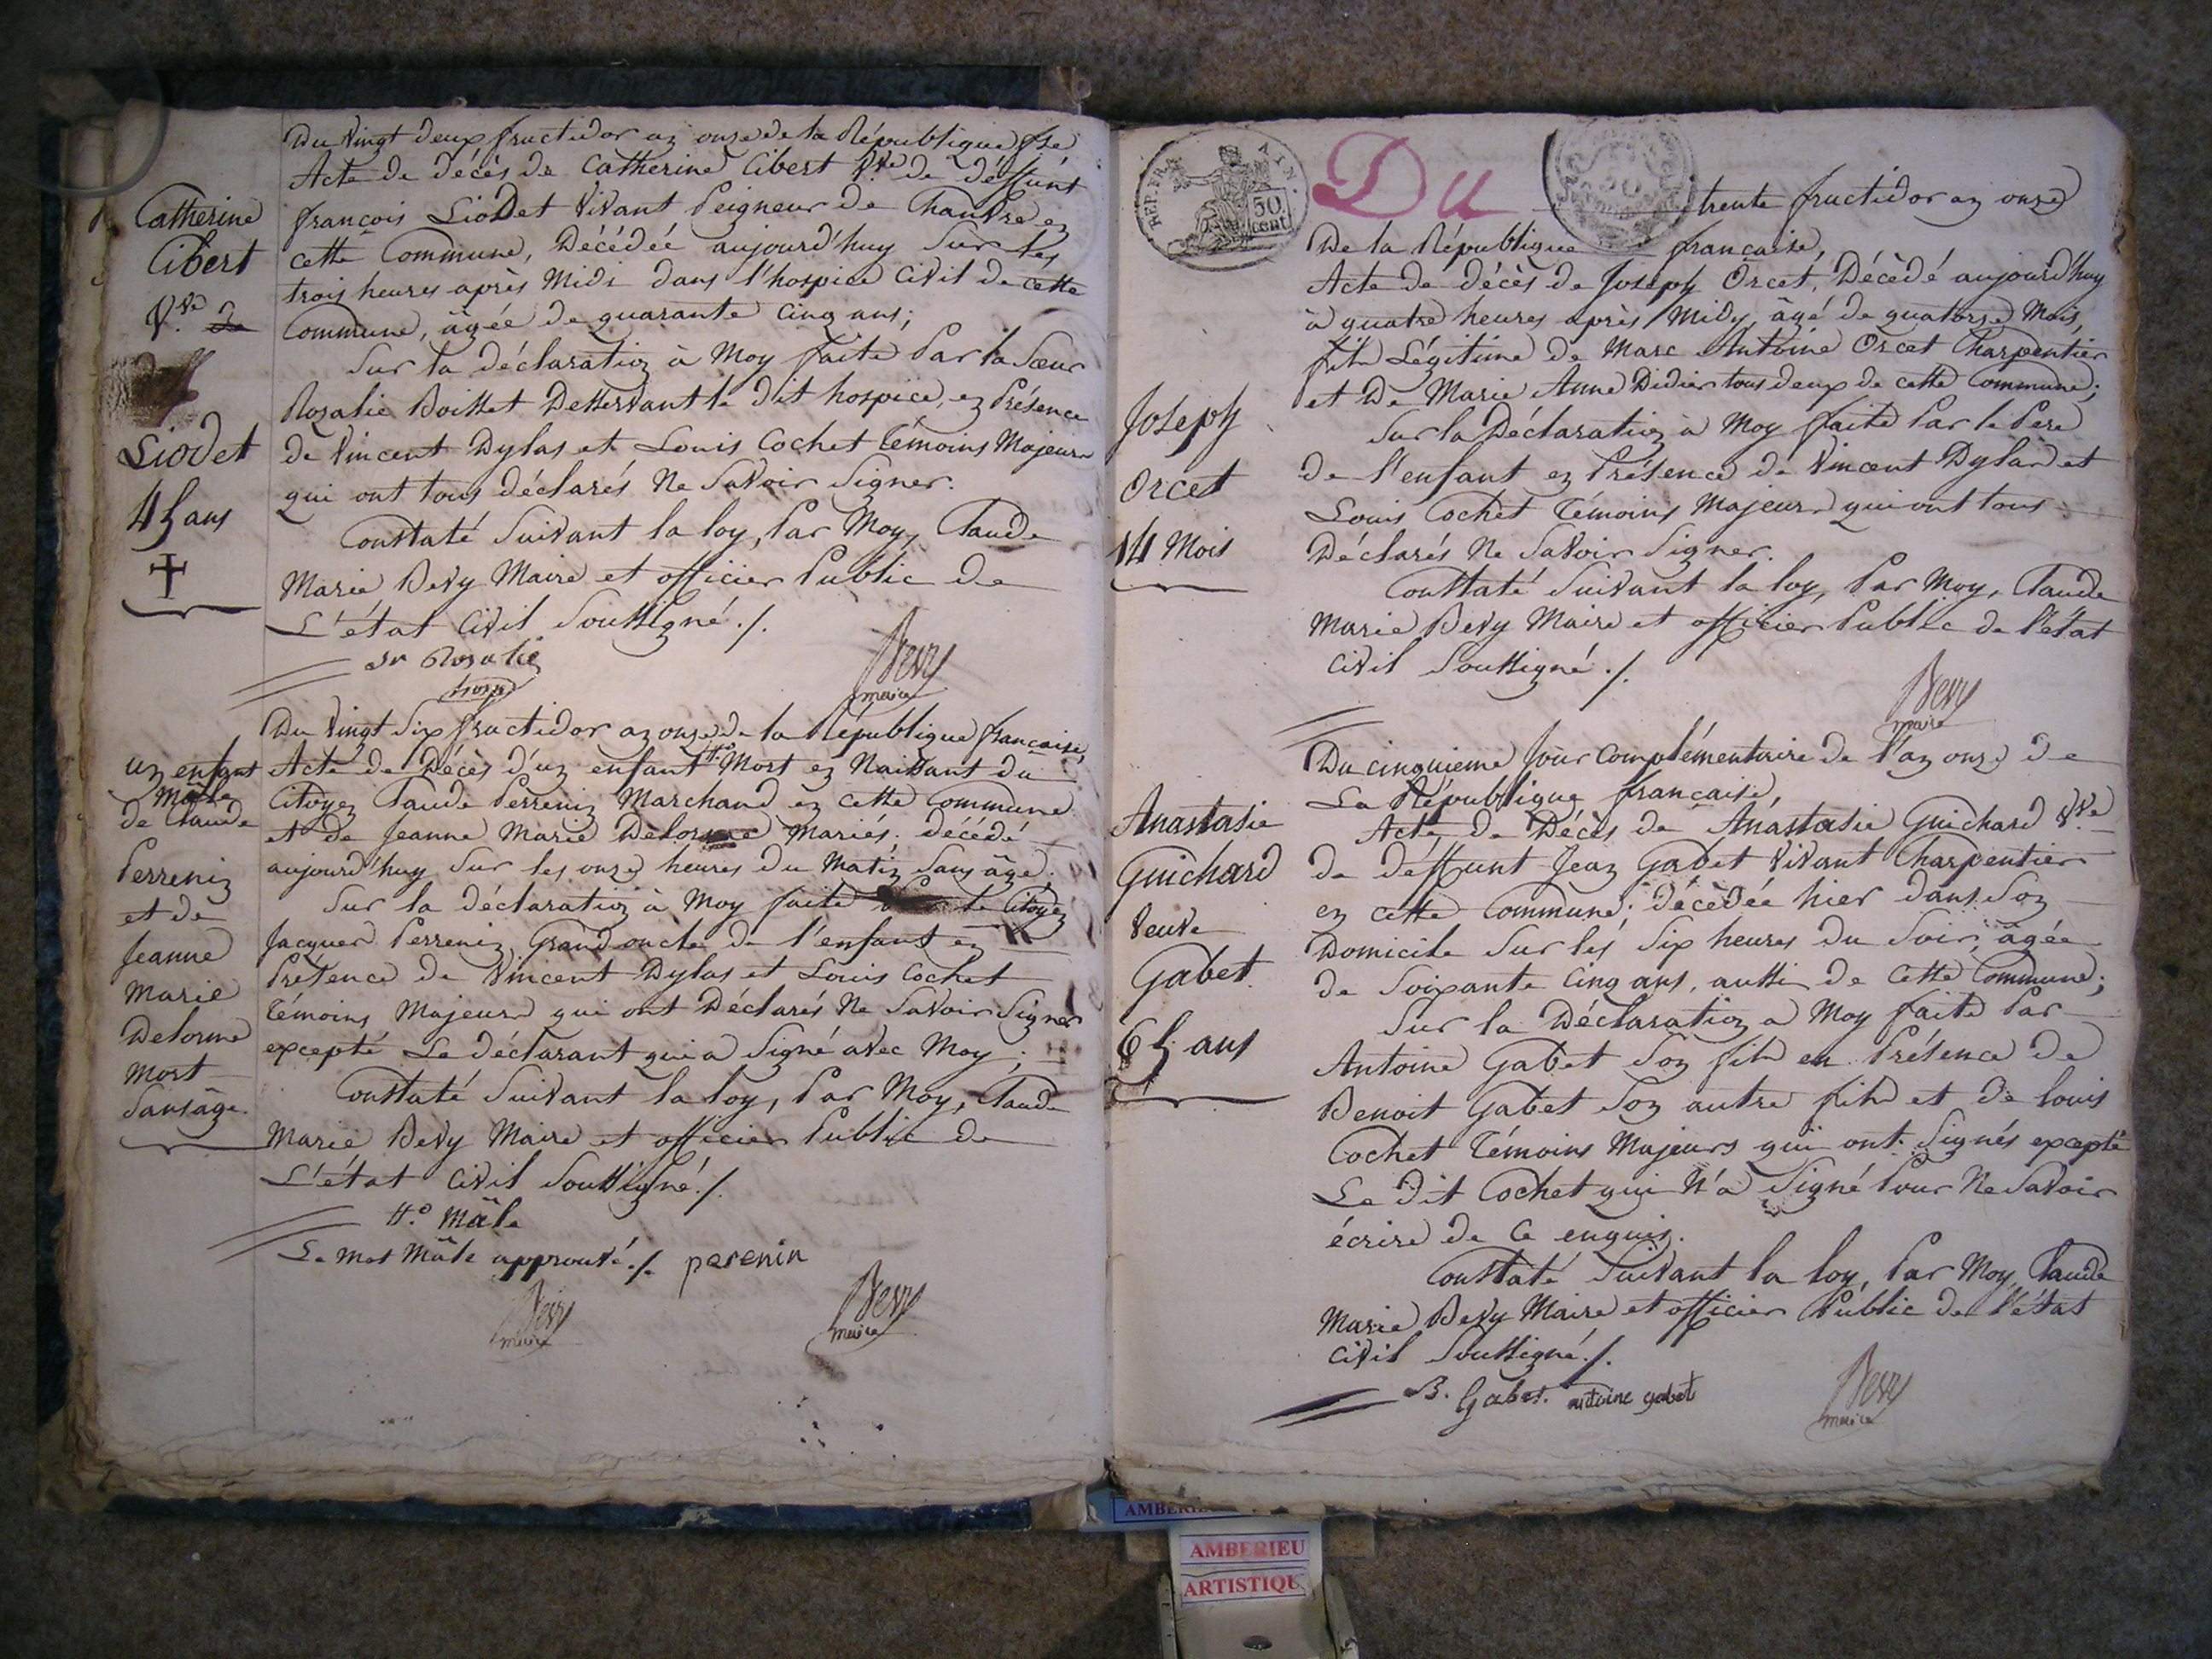 Du Vingt deux fructidor an onze de la République fse
Acte de décès de Catherine Cibert Vve de déffunt
françois Liodet Vivant Peigneur de Chanvre en
cette Commune, Décédée aujourd'huy Sur les
trois heures après Midi dans l'hospice Civil de cette
Commune, âgée de quarante Cinq ans;
Sur la déclaration à Moy faite Par la Sœur
Rozalie Boisset Desservant le dit hospice, en Présence
de Vincent Dylas et Louis Cochet témoins Majeurs
qui ont tous déclarés Ne Savoir Signer.
Constaté Suivant la loy, Par Moy, Claude
Marie Bevy Maire et officier Public de
L'état Civil Soussigné ./.
Sr Rosalie
Bevy
maire
Catherine
Cibert
Vve de
Liodet
45 ans
Du Vingt Six fructidor an onze de la République française,
Acte de Décès d'un enfant Mort en Naissant du
Citoyen Claude Perrenin Marchand en cette Commune
et de Jeanne Marie Delorme Mariés; décédé
aujourd'huy Sur les onze heures du Matin Sans âge;
Sur la déclaration à Moy faite le Citoyen
Jacques Perrenin Grand oncle de l'enfant en
Présence de Vincent Dylas et Louis Cochet
témoins Majeurs qui ont Déclarés Ne Savoir Signer
excepté Le déclarant qui a Signé avec Moy;
Constaté Suivant la loy, Par Moy, Claude
Marie Bevy Maire et officier Public de
L'état Civil Soussigné ./.
Mâle
Le mot Mâle approuvé ./. perenin
Bevy Bevy
maire maire
un enfant
Mâle
de Claude
Perrenin
et de
Jeanne
Marie
Delorme
mort
Sans âge.
REP. FRA. AIN.
50
cent
Du trente fructidor an onze
De la République française,
Acte de décès de Joseph Orcet, Décédé aujourd'huy
à quatre heures après Midy, âgé de quatorze Mois,
fils Légitime de Marc Antoine Orcet Charpentier
et de Marie Anne Didier tous deux de cette Commune;
Sur la Déclaration à Moy faite Par le Pere
de l'enfant en Présence de Vincent Dylas et
Louis Cochet Témoins Majeurs qui ont tous
Déclarés Ne Savoir Signer.
Constaté Suivant la loy, Par Moy, Claude
Marie Bevy Maire et officier Public de l'état
Civil Soussigné ./.
Bevy
maire
Joseph
Orcet
14 Mois
Du cinquieme Jour Complémentaire de l'an onze de
La République française,
Acte de Décès de Anastasie Guichard Vve
de déffunt Jean Gabet Vivant Charpentier
en cette Commune; décédée hier dans Son
Domicile Sur les Six heures du Soir, âgée
de Soixante Cinq ans, aussi de Cette Commune;
Sur la Déclaration a Moy faite Par
Antoine Gabet Son fils en Présence de
Benoit Gabet Son autre fils et de louis
Cochet Témoins Majeurs qui ont Signés excepté
Le Dit Cochet qui N'a Signé Pour Ne Savoir
écrire de Ce enquis.
Constaté Suivant la loy, Par Moy, Claude
Marie Bevy Maire et officier Public de l'état
Civil Soussigné ./.
B. Gabet. antoine gabet
Bevy
maire
Anastasie
Guichard
Veuve
Gabet.
65 ans
AMBERIEU
ARTISTIQU